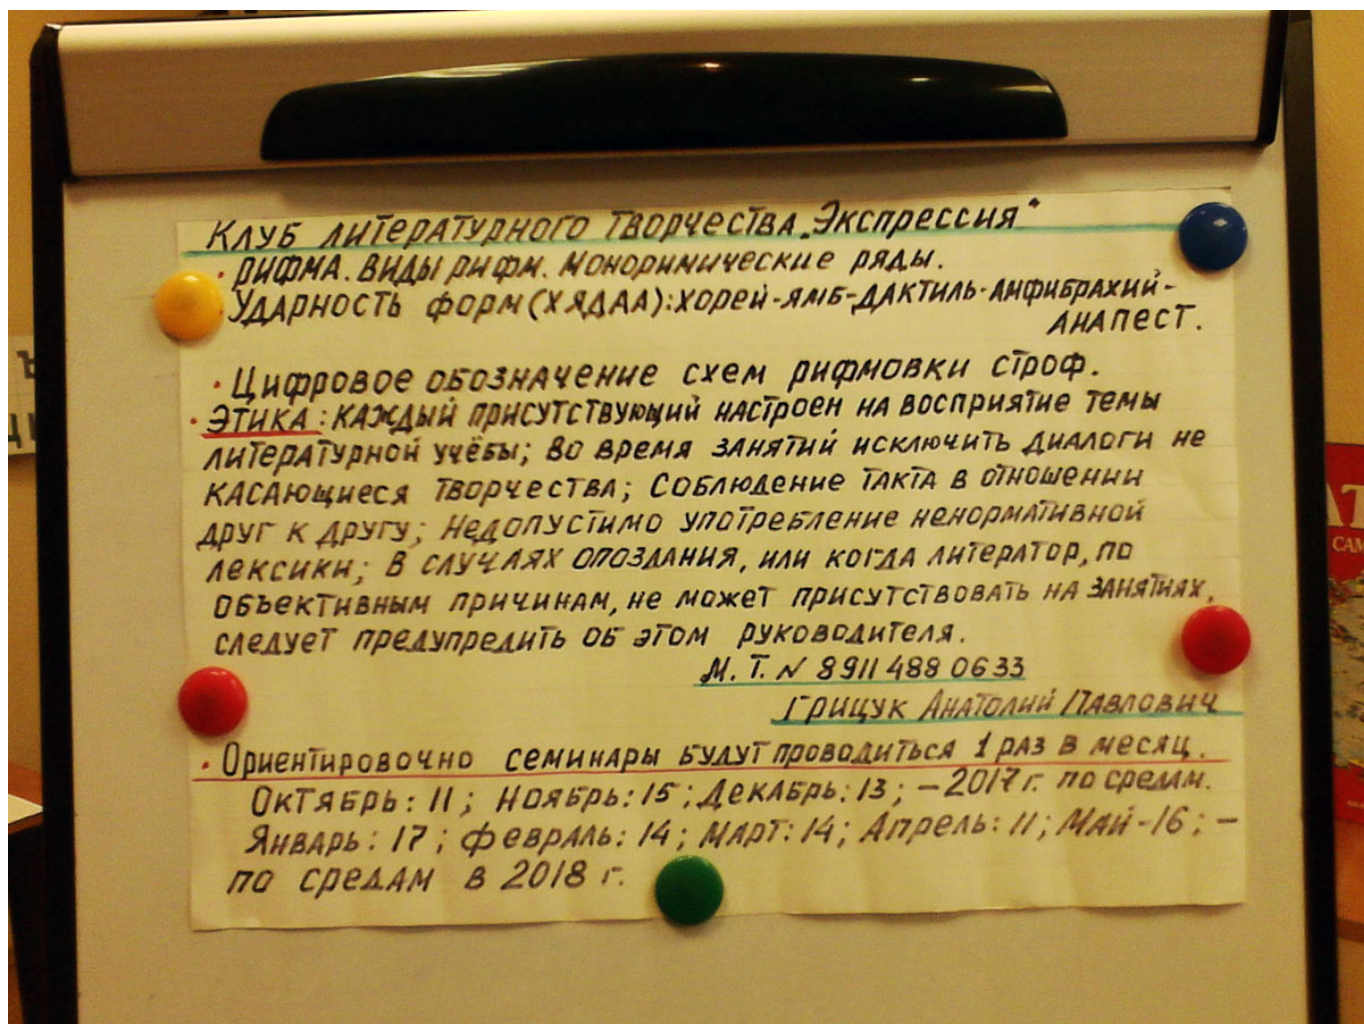 Клуб литературного творчества „Экспрессия"
· Рифма. Виды рифм. Моноримические ряды.
Ударность форм (ХЯДАА): хорей-ямб-дактиль-амфибрахий-
анапест.
· Цифровое обозначение схем рифмовки строф.
· Этика: каждый присутствующий настроен на восприятие темы
литературной учёбы; Во время занятий исключить диалоги не
касающиеся творчества; Соблюдение такта в отношении
друг к другу; Недопустимо употребление ненормативной
лексики; В случаях опоздания, или когда литератор, по
объективным причинам, не может присутствовать на занятиях,
следует предупредить об этом руководителя.
М. Т. N 8911 488 0633
Грищук Анатолий Павлович
· Ориентировочно семинары будут проводиться 1 раз в месяц.
Октябрь: 11; Ноябрь: 15; Декабрь: 13; – 2017 г. по средам.
Январь: 17; Февраль: 14; Март: 14; Апрель: 11; Май - 16; –
по средам в 2018 г.
САМ